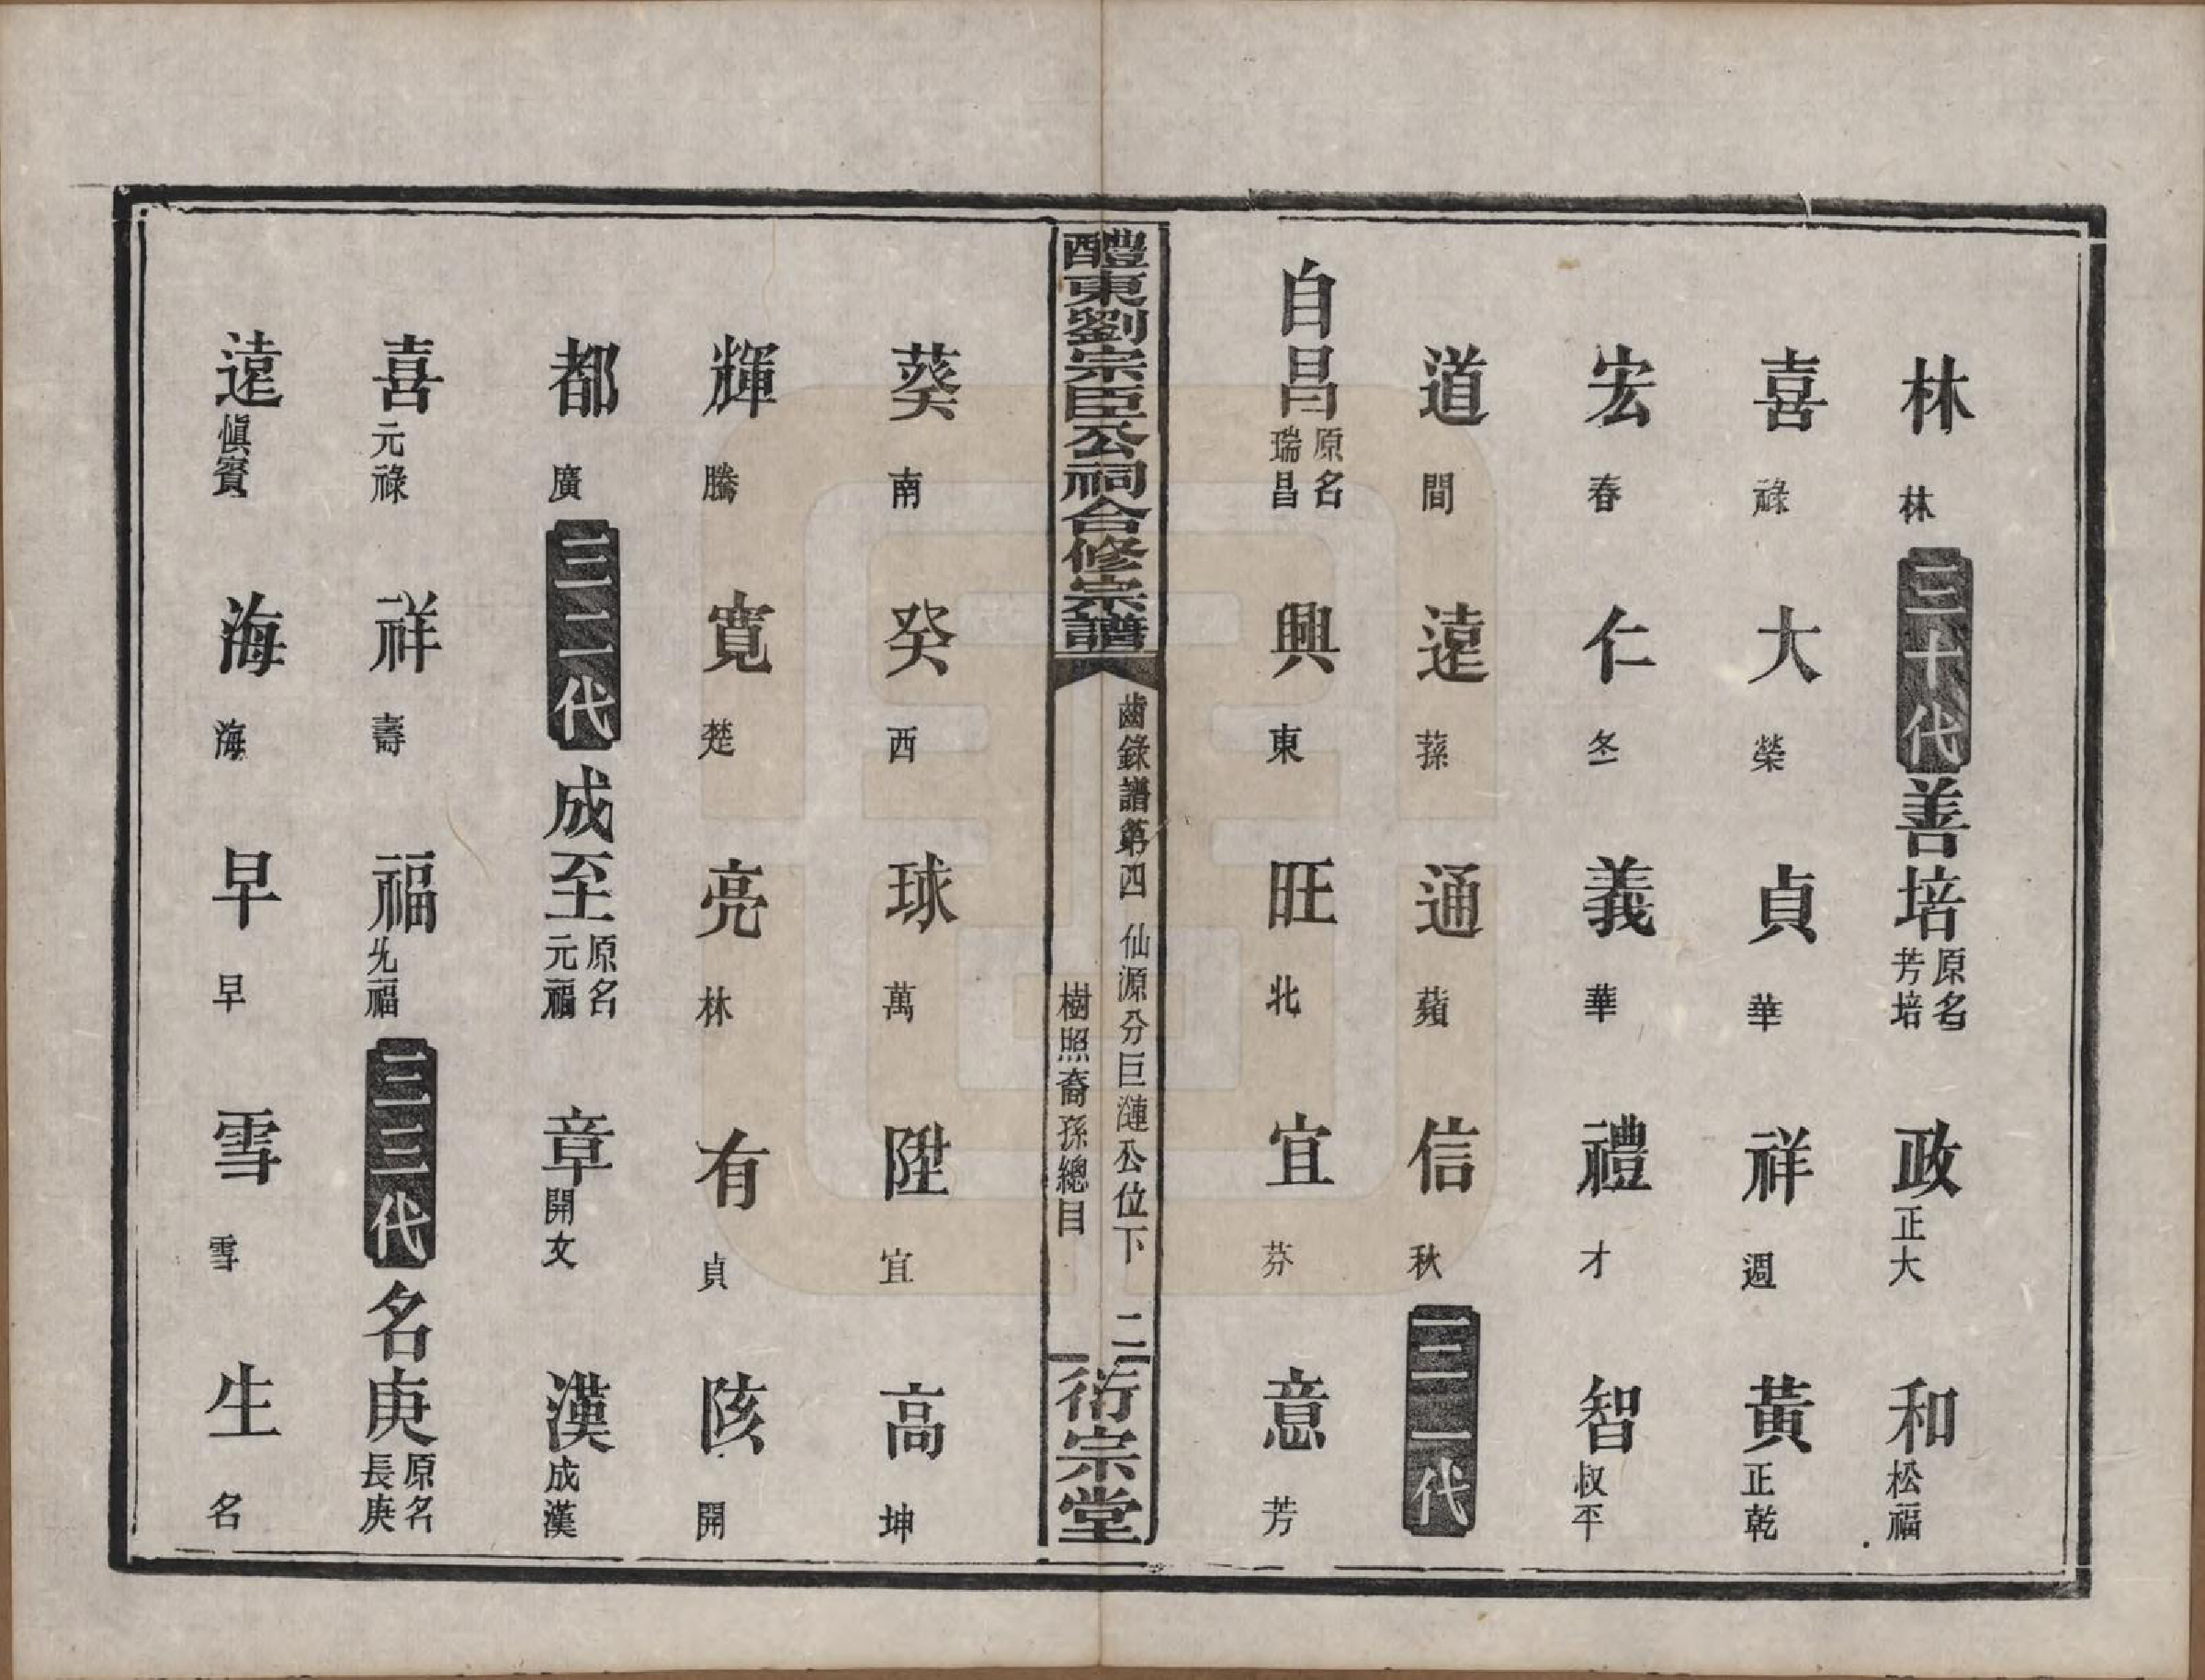 林林 三十代 善培原名芳培 政正大 和松福
喜祿 大榮 貞華 祥週 黃正乾
宏春 仁冬 義華 禮才 智叔平
道間 遠蓀 通蘋 信秋 三一代
自昌原名瑞昌 興東 旺北 宜芬 意芳
醴東劉宗臣公祠合修宗譜
齒錄譜第四 仙源分巨漣公位下 二
樹照裔孫總目
衍宗堂
葵南 癸西 球萬 陞宜 高坤
輝騰 寬楚 亮林 有貞 陔開
都廣 三二代 成至原名元福 章開文 漢成漢
喜元祿 祥壽 福先福 三三代 名庚原名長庚
遠慎賓 海海 早早 雪雪 生名